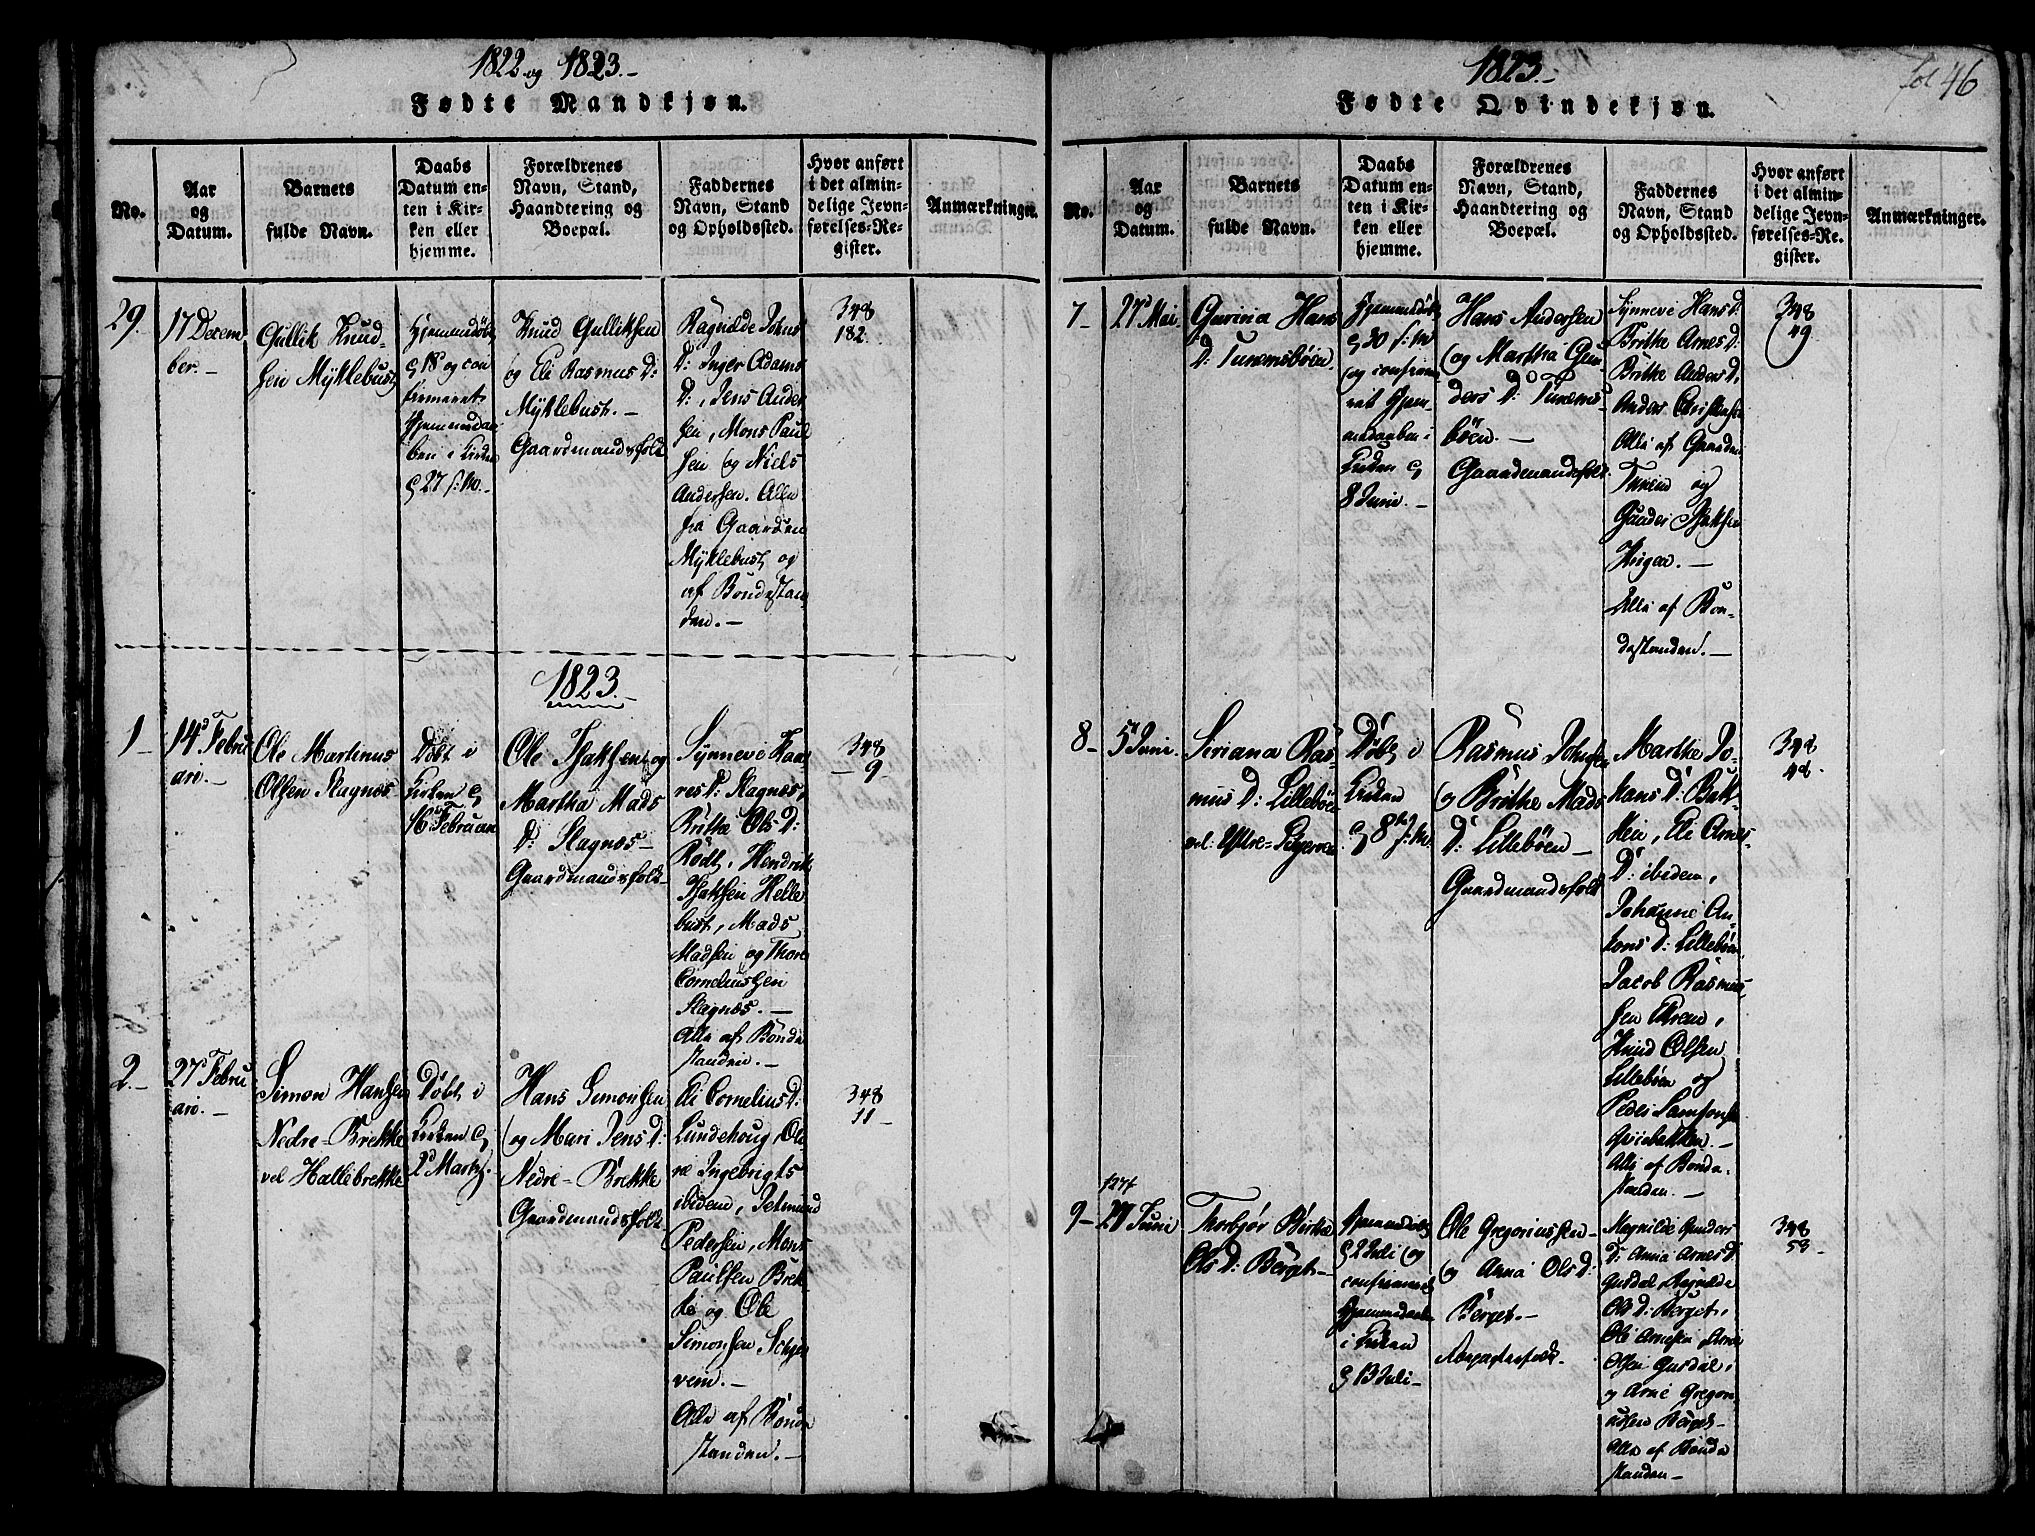 1822 og 1823.-
Fødte Mandkjøn.
No.
Aar
og
Datum.
Barnets
fulde Navn.
Daabs
Datum en-
ten i Kir-
ken eller
hjemme.
Forældrenes
Navn, Stand,
Haandtering og
Boepæl.
Faddernes
Navn, Stand
og Opholdssted.
Hvor anført
i det almin-
delige Jevn-
førelses-Re-
gister.
Anmærkninger.
29.
17 Decem-
ber.-
Gullik Knud-
sen Myklebust
Hjemmedøbt
18 og con
firmeret
Hjemmedaa
ben i Kirken
27 s: M.
Knud Gulliksen
og Eli Rasmus D:
Myklebust.-
Gaardmandsfolk
Ragnilde Johns
D: Inger Adams
D:, Jens Ander
sen, Mons Paul
sen og Niels
Andersen. Alle
fra Gaarden
Myklebust og
af Bondestan
den.-
348
182.
1823.-
1-
14d Febru
ari.-
Ole Martinus
Olsen Slagnæs
Døbt i
Kirken
16 Februari
Ole Isaksen og
Martha Mads
D: Slagnæs-
Gaardmandsfolk-
Synneve Kaa
res D: Slagnæs,
Britte Ols D:
Rødt, Hendrik
Isaksen Helle
bust, Mads
Madsen og Thore
Corneliussen
Slagnæs.-
Alle af Bonde
standen.-
348
9-
2.-
27d Febru
ari.-
Simon Hansen
Nedre-Brekke
vel Hallebrekke
Døbt i
Kirken
2d Marts.
Hans Simonsen
og Mari Jens D:
Nedre-Brekke
Gaardmandsfolk
Eli Cornelius D:
Lundehoug, Ol
Ingebrigts
ibidem, Jetmund
Pedersen, Mons
Paulsen Brek
ke og Ole
Simonsen
vem.-
Alle af Bonde
standen.-
348
11-
1823.-
fol 46
Fødte Qvindekjøn.
No.
Aar
og
Datum.
Barnets
fulde Navn.
Daabs
Datum en-
ten i Kir-
ken eller
hjemme.
Forældrenes
Navn, Stand,
Haandtering og
Boepæl.
Faddernes
Navn, Stand
og Opholdssted.
Hvor anført
i det almin-
delige Jevn-
førelses-Re-
gister.
Anmærkninger.
7-
27d Mai
Gurina Hans
D: Tunemsbøen.
Hjemmedøbt
30 s: M
og confirme
ret Hjem-
medaaben i
Kirken
8 Juni.-
Hans Andersen
og Martha Gun
ders D: Tunems-
bøen.-
Gaardmandsfolk
Synneve Hans D:
Britke Arnes D:
Britke Anders D,
Anders Christensen
Alle af Gaarden
Tunem og
Gunder Isaksen
Alle af Bon-
destanden.-
348
49
8-
5d Juni.
Seriana Ras-
mus D: Lillebøen
vel Ystre-
Døbt i
Kirken
8de s: M.
Rasmus Johnsen
og Brithe Mads
D: Lillebøen-
Gaardmandsfolk
Marthe Jo-
hans D: Bak-
ken, Eli Arnes-
D: ibidem,
Johanne An-
tons D: Lillebøen
Jacob Rasmus
sen
Knud Olsen
Lillebøen og
Peder Samsonsen
Alle af Bonde-
standen.-
348
48.
9-
127f
27 Juni
Thorbjør Birthe
Ols D: Berget-
Hjemmedøbt
2 Juli og
confirmeret
Hjemmedaaben
i Kirken
13 Juli-
Ole Gregoriussen-
og Anna Ols D:
Berget.-
Ragnilde Gunders
D: Anna Arnes D:
Gusdal, Ragnilde
Ols D: Berget,
Ole Arnesen, Arne
Olsen Gusdal,
og Arne Gregori
ussen Berget-
Alle af Bonde
standen-
348
58-